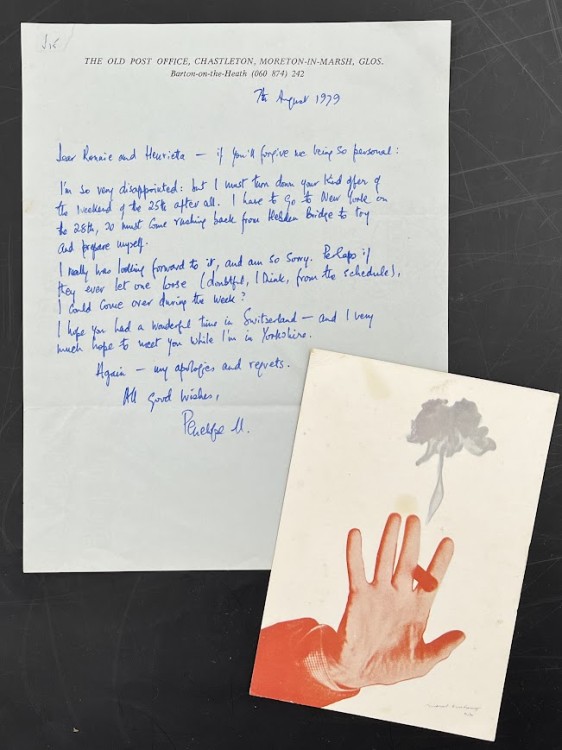 THE OLD POST OFFICE, CHASTLETON, MORETON-IN-MARSH, GLOS.
Barton-on-the-Heath (060 874) 242
7th August 1979
Dear Ronnie and Henrietta — if you'll forgive me being so personal:
I'm so very disappointed: but I must turn down your kind offer of
the weekend of the 25th after all. I have to go to New York on
the 28th, so must come rushing back from Hebden Bridge to try
and prepare myself.
I really was looking forward to it, and am so sorry. Perhaps if
they ever let one loose (doubtful, I think, from the schedule),
I could come over during the week?
I hope you had a wonderful time in Switzerland — and I very
much hope to meet you while I'm in Yorkshire.
Again — my apologies and regrets.
All good wishes,
Penelope M.